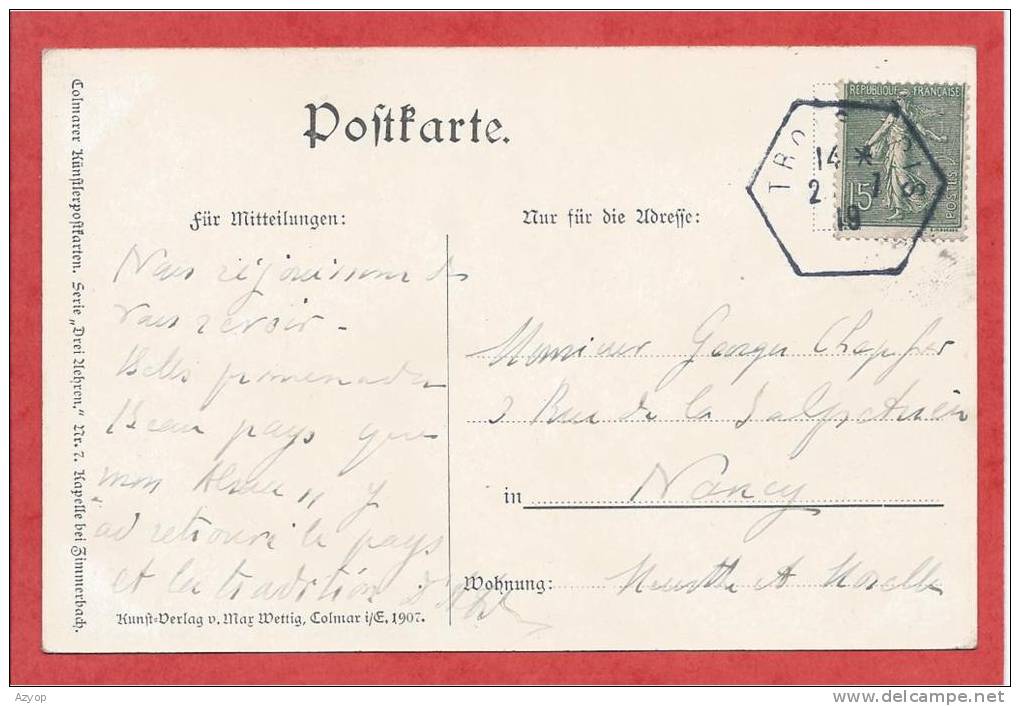 Postkarte.
REPUBLIQUE FRANÇAISE
POSTES
15
TROIS
14 *
2 7
19
Für Mitteilungen:
Nur für die Adresse:
Nous réjouissons de
vous revoir -
Belles promenades
Beau pays que
mon Alsace, y
ai retrouvé le pays
et la tradition
Monsieur Georges
3 Rue de la
in Nancy
Wohnung: Meurthe & Moselle
Kunst=Verlag v. Max Wettig, Colmar i/E, 1907.
Colmarer Künstlerpostkarten. Serie „Drei Aehren." Nr. 7. Kapelle bei Zimmerbach.
Azyop
www.delcampe.net